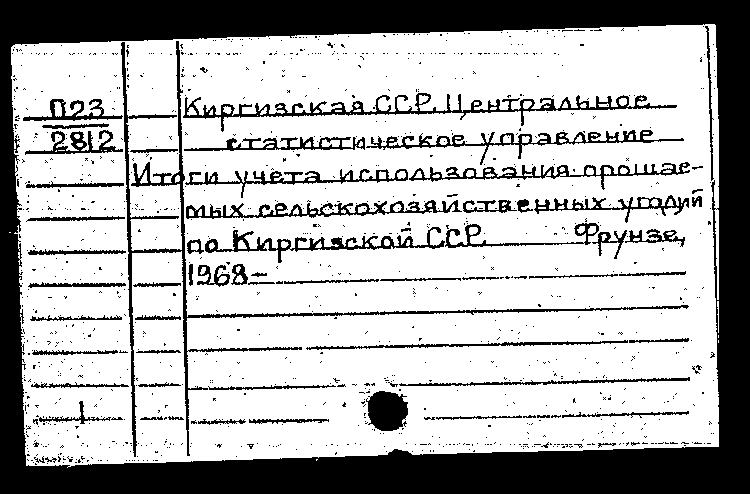 П23 Киргизская ССР. Центральное
2812 статистическое управление
Итоги учета использования орошае-
мых сельскохозяйственных угодий
по Киргизской ССР. Фрунзе,
1968-
1